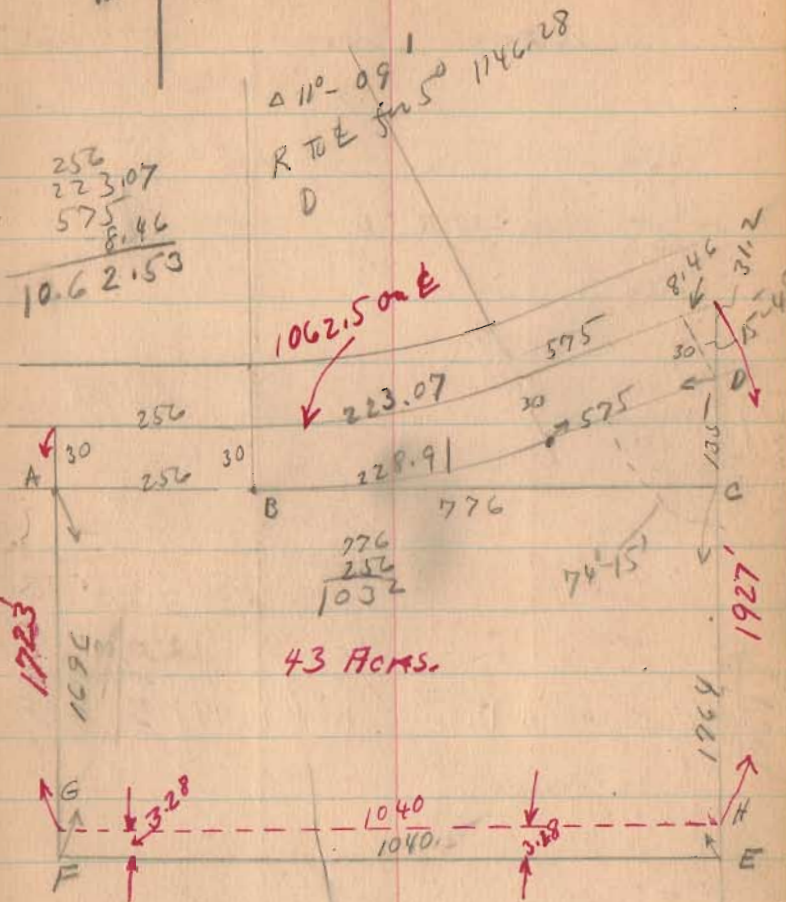 Δ 11°-09'
R To ℄ for 5° 1146.28
D
256
223.07
575
8.46
10.62.53
1062.5 on ℄
8.46
31.2
575
30
D
256
223.07
30
575
135
A
30
256
30
228.91
B
776
C
776
256
1032
74'-15'
1723
1696
43 Acres.
1927'
1764
G
3.28
1040
3.28
H
1040.
F
E